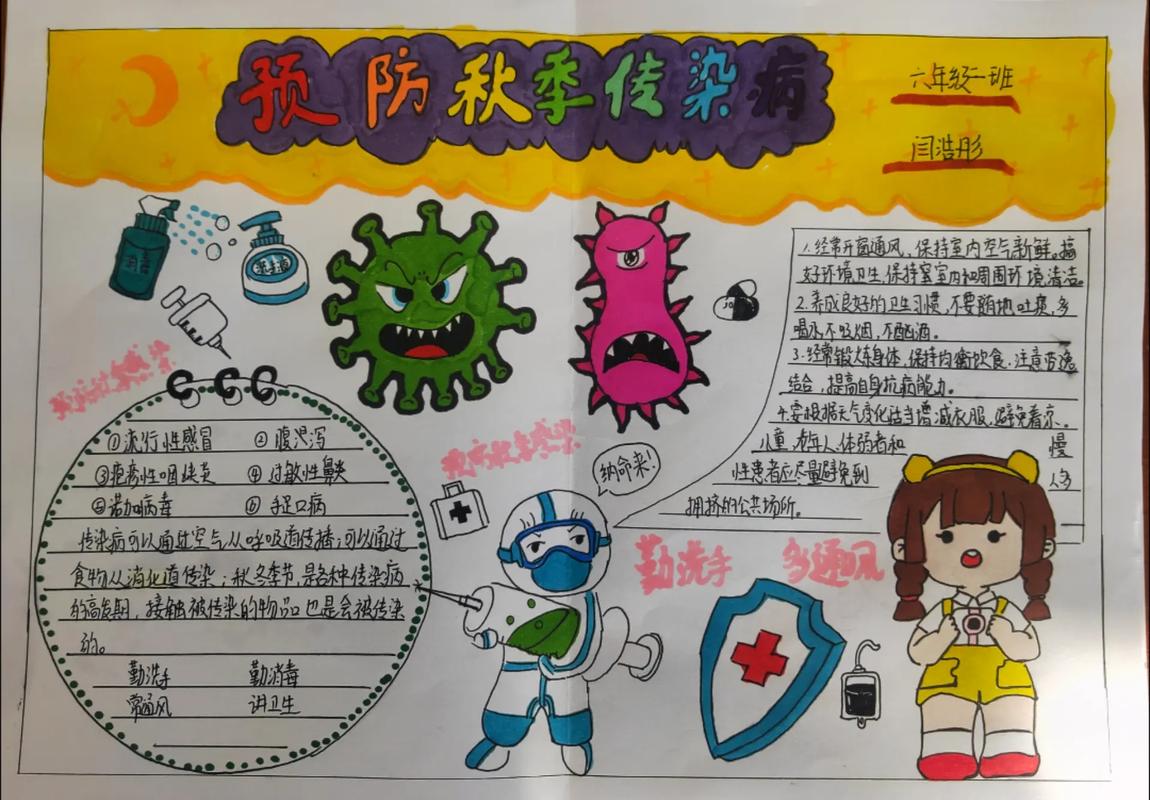 预防秋季传染病
六年级一班
闫浩彤
消毒
洗手液
1.经常开窗通风,保持室内空气新鲜。搞
好环境卫生,保持室室内和周围环境清洁。
2.养成良好的卫生习惯,不要随地吐痰,多
喝水,不吸烟,不酗酒。
3.经常锻炼身体,保持均衡饮食,注意劳逸
结合,提高自身抗病能力。
4.要根据天气变化适当增减衣服,避免着凉。
儿童、老年人、体弱者和 慢
性患者应尽量避免到 人多
拥挤的公共场所。
①流行性感冒 ②腹泻
③疱疹性咽峡炎 ④过敏性鼻炎
⑤诺加病毒 ⑥手足口病
传染病可以通过空气从呼吸道传播;可以通过
食物从消化道传染;秋冬季节,是各种传染病
的高发期,接触被传染的物品也是会被传染
的。
勤洗手 勤消毒
常通风 讲卫生
纳命来!
勤洗手 多通风